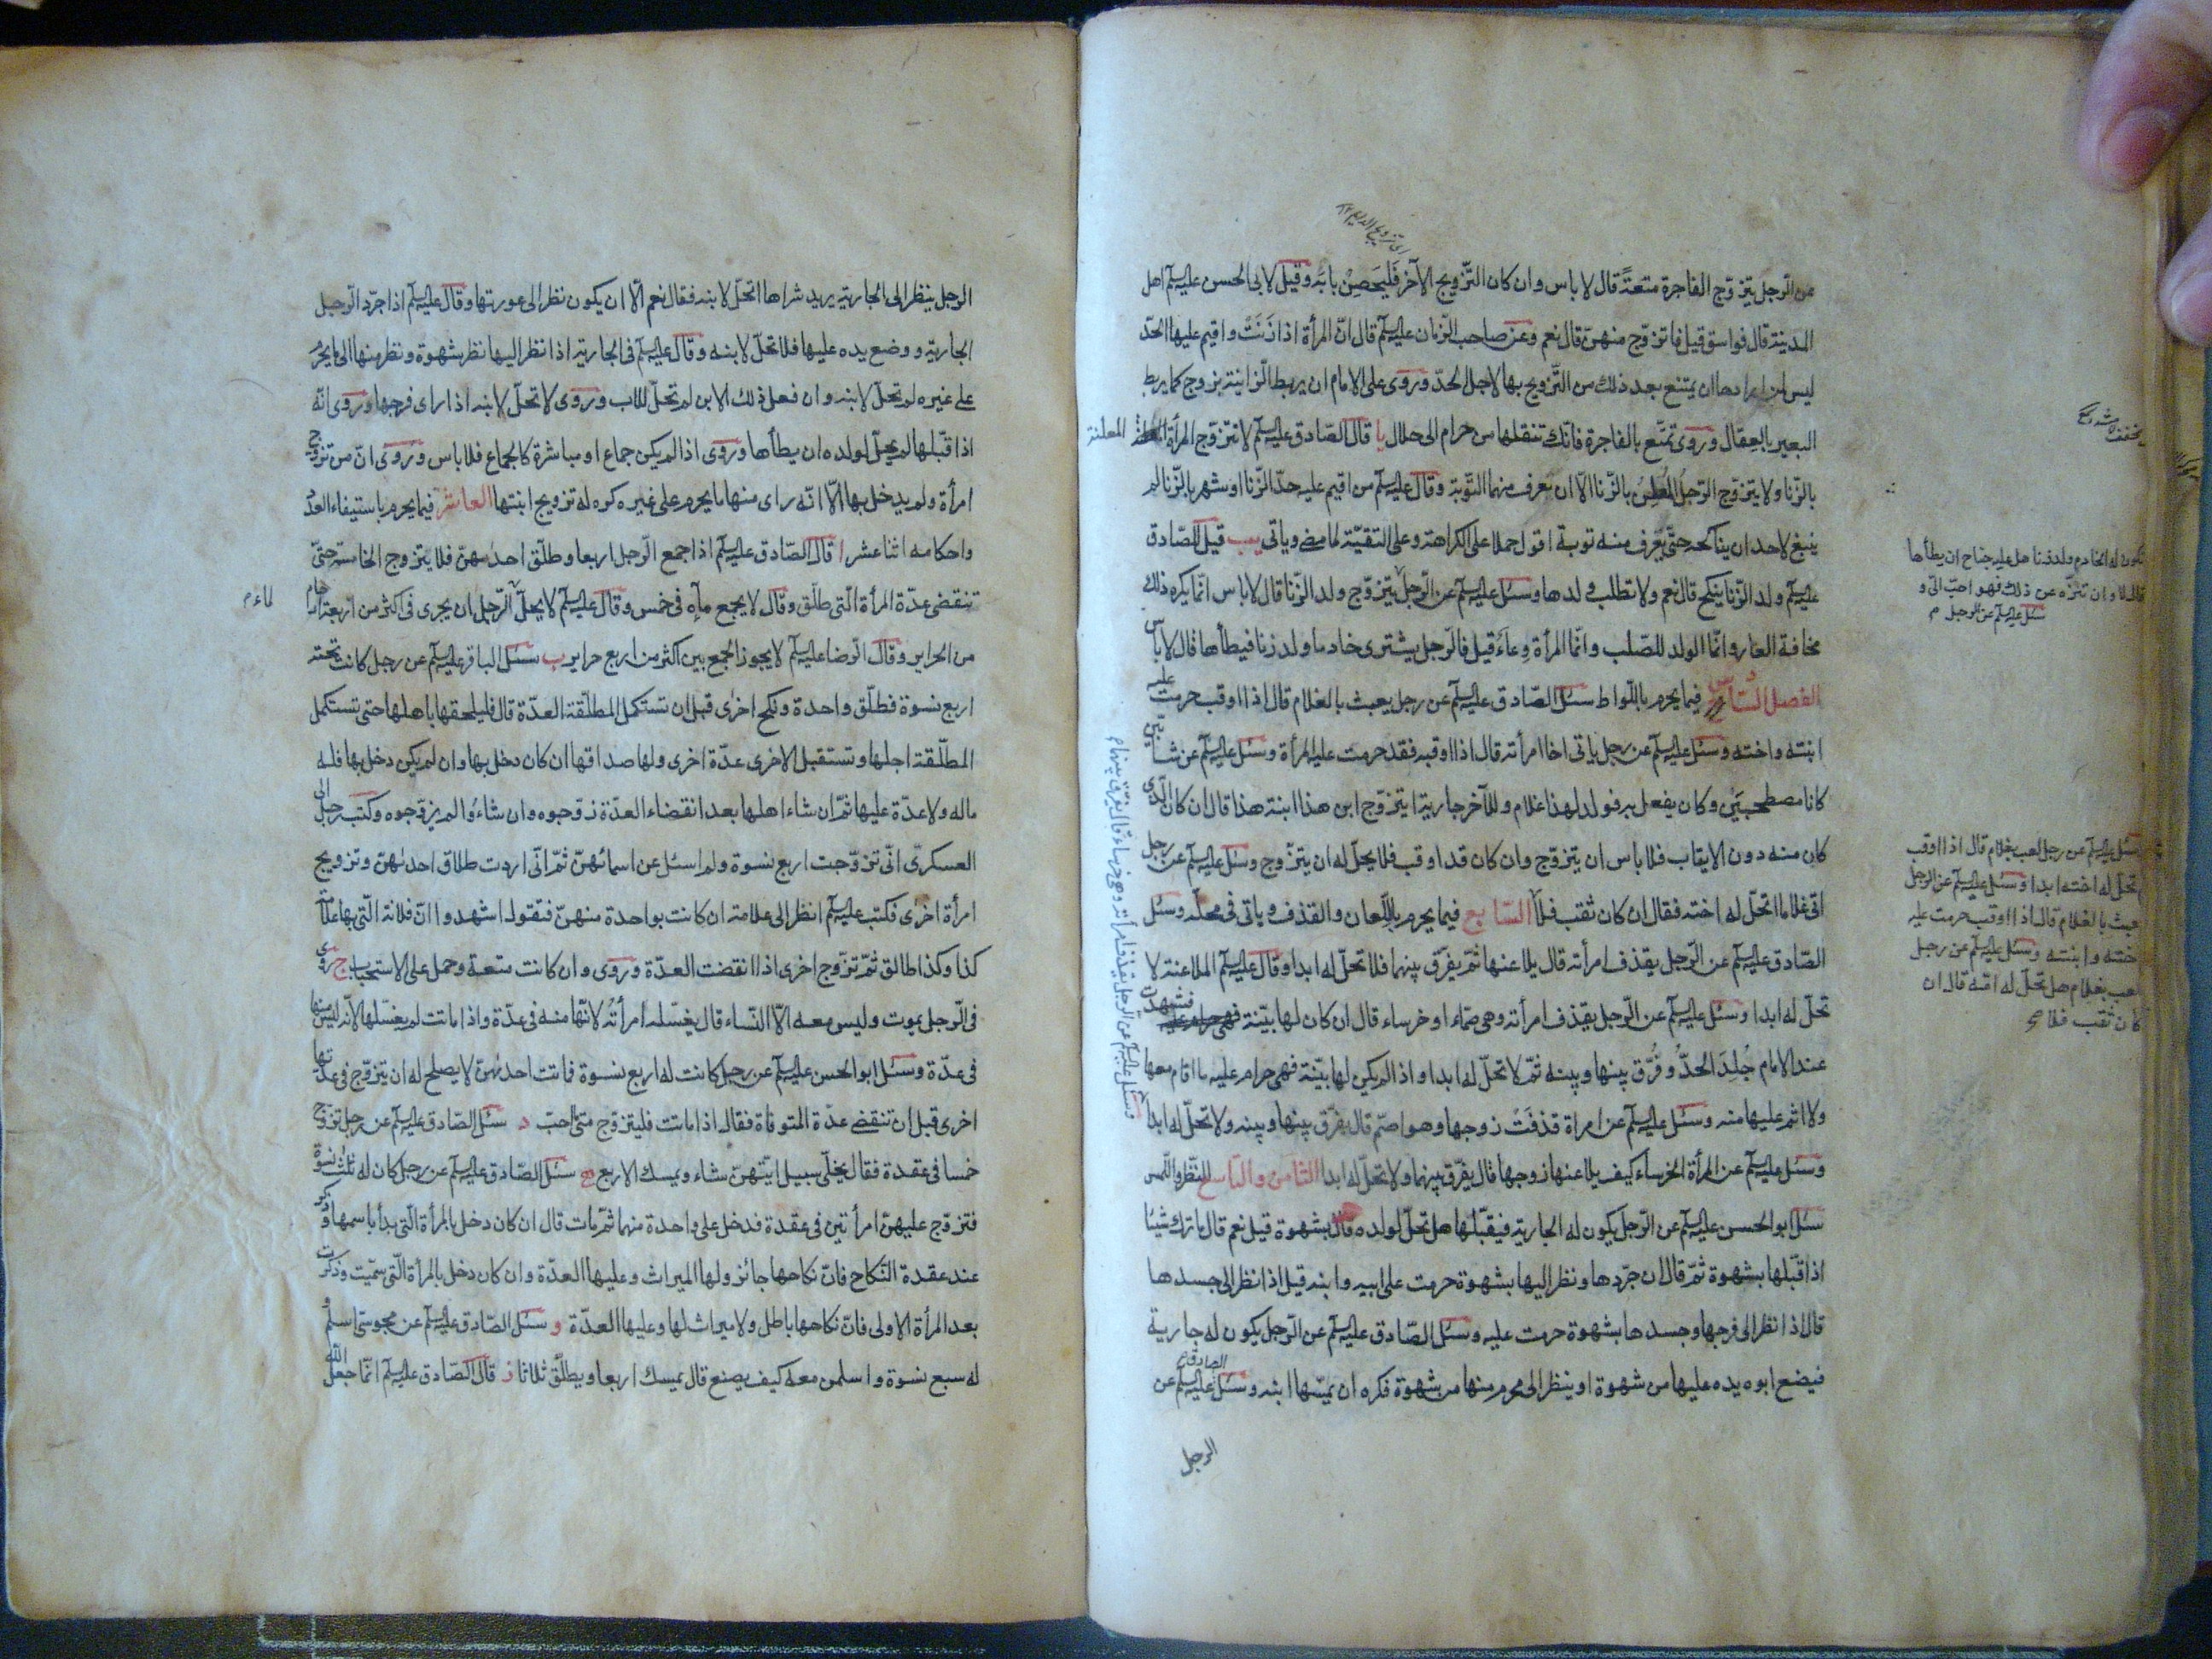 عن الرّجل يتزوّج الفاجرة متعةً قال لا باس وان كان التّزويج الآخر فليحصن بابه وقيل لابى الحسن عليه السلم اهل
المدينة قال فواسق قيل فاتزوّج منهنّ قال نعم وعن صاحب الزّمان عليه السلم قال انّ المرأة اذا زَنَتْ واقيم عليها الحدّ
ليس لمن ارادها ان يمتنع بعد ذلك من التّزويج بها لاجل الحدّ وروى على الامام ان يربط الزّانية بزوج كما يربط
البعير بالعِقال وروى تمتّع بالفاجرة فانّك تنقلها من حرام الى حلال يا قال الصّادق عليه السلم لا تتزوّج المرأة المعلنة
بالزّنا ولا يتزوّج الرّجلُ المُعلِنُ بالزّنا الّا ان تعرف منهما التّوبة وقال عليه السلم من اقيم عليه حدّ الزّنا او شهر بالزّنا لم
ينبغ لاحد ان يناكحه حتّى يعرف منه توبة اقول حملا على الكراهة وعلى التقيّة لما مضى وياتى يب قيل للصّادق
عليه السلم ولد الزّنا ينكح قال نعم ولا تطلب ولدها وسئل عليه السلم عن الرّجل يتزوّج ولد الزّنا قال لا باس انّما يكره ذلك
مخافة العار وانّما الولد للصّلب وانّما المرأة وِعاءٌ قيل فالرّجل يشترى خادما ولد زنا فيطأها قال لا باس
الفصل السّادس فيما يحرم باللّواط سئل الصّادق عليه السلم عن رجل يعبث بالغلام قال اذا اوقب حرمت عليه
ابنته واخته وسئل عليه السلم عن رجل ياتى اخا امرأته قال اذا اوقبه فقد حرمت عليه المرأة وسئل عليه السلم عن شابّين
كانا مصطحبَين وكان يفعل به فولد لهذا غلام وللآخر جارية ايتزوّج ابن هذا ابنة هذا قال ان كان الّذى
كان منه دون الايقاب فلا باس ان يتزوّج وان كان قد اوقب فلا يحلّ له ان يتزوّج وسئل عليه السلم عن رجل
اتى غلاما اتحلّ له اخته فقال ان كان ثقب فلا السّابع فيما يحرم باللّعان والقذف وياتى فى محلّه وسئل
الصّادق عليه السلم عن الرّجل يقذف امرأته قال يلاعنها ثمّ يفرّق بينهما فلا تحلّ له ابدا وقال عليه السلم الملاعنة لا
تحلّ له ابدا وسئل عليه السلم عن الرّجل يقذف امرأته وهى صمّاء او خرساء قال ان كان لها بيّنة فتشهدت
عند الامام جُلِدَ الحدَّ وفُرّق بينها وبينه ثمّ لا تحلّ له ابدا واذا لم يكن لها بيّنة فهى حرام عليه ما اقام معها
ولا اثم عليها منه وسئل عليه السلم عن امراة قذفَتْ زوجها وهو اصمّ قال يفرّق بينها وبينه ولا تحلّ له ابداً
وسئل عليه السلم عن المرأة الخرساء كيف يلاعنها زوجها قال يفرّق بينهما ولا تحلّ له ابدا الثامن والتّاسع للنّظر واللّمس
سئل ابو الحسن عليه السلم عن الرّجل يكون له الجارية فيقبّلها هل تحلّ لولده قال بشهوة قيل نعم قال ما ترك شيئا
اذا قبّلها بشهوة ثمّ قال ان جرّدها ونظر اليها بشهوة حرمت على ابيه وابنه قيل اذا نظر الى جسدها
قال اذا نظر الى فرجها وجسدها بشهوة حرمت عليه وسئل الصّادق عليه السلم عن الرّجل يكون له جارية
فيضع ابوه يده عليها من شهوة او ينظر الى محرم منها من شهوة فكره ان يمسّها ابنه وسئل عليه السلم عن
الصادق
الرجل
المعلنة
يكون له الخادم ولد زنا هل عليه جناح ان يطأها
قال لا وان تنزّه عن ذلك فهو احبّ الىّ و
سئل عليه السلم عن الرجل م
سئل عليه السلم عن رجل لعب بغلام قال اذا اوقب
تحلّ له اخته ابدا وسئل عليه السلم عن الرجل
يعبث بالغلام قال اذا اوقب حرمت عليه
اخته وابنته وسئل عليه السلم عن رجل
لعب بغلام هل تحلّ له امّه قال ان
كان ثقب فلا صح
وسئل عليه السلم عن الرجل يقذف امرأته وهى خرساء قال يفرّق بينهما م
الرجل ينظر الى الجارية يريد شراها اتحلّ لابنه فقال نعم الّا ان يكون نظر الى عورتها وقال عليه السلم اذا جرّد الرّجل
الجارية ووضع يده عليها فلا تحلّ لابنه وقال عليه السلم فى الجارية اذا نظر اليها نظر شهوة ونظر منها الى ما يحرم
على غيره لم تحلّ لابنه وان فعل ذلك الابن لم تحلّ للاب وروى لا تحلّ لابنه اذا راى فرجها وروى انّه
اذا قبّلها لم يحلّ لولده ان يطأها وروى اذا لم يكن جماع او مباشرة كالجماع فلا باس وروى انّ من تزوّج
امرأة ولم يدخل بها الّا انّه راى منها ما يحرم على غيره كره له تزويج ابنتها العاشر فيما يحرم باستيفاء العدد
واحكامه اثنا عشر ا قال الصّادق عليه السلم اذا جمع الرّجل اربعا وطلّق احدٰىهنّ فلا يتزوج الخامسة حتّى
تنقضى عدّة المرأة الّتى طلّق وقال لا يجمع مآءه فى خمس وقال عليه السلم لا يحلّ لماء الرّجل ان يجرى فى اكثر من اربعة ارحام
من الحراير وقال الرّضا عليه السلم لا يجوز الجمع بين اكثر من اربع حراير ب سئل الباقر عليه السلم عن رجل كانت تحته
اربع نسوة فطلّق واحدة ونكح اخرى قبل ان تستكمل المطلّقة العدّة قال فليلحقها باهلها حتى تستكمل
المطلّقة اجلها وتستقبل الاخرى عدّة اخرى ولها صداقها ان كان دخل بها وان لم يكن دخل بها فله
ماله ولا عدّة عليها ثمّ ان شاء اهلها بعد انقضاء العدّة زوّجوه وان شاءُوا لم يزوّجوه وكتب رجل الى
العسكرىّ انّى تزوّجت اربع نسوة ولم اسئل عن اسمائهنّ ثمّ انّى اردت طلاق احدٰىهنّ وتزويج
امرأة اخرى فكتب عليه السلم انظر الى علامة ان كانت بواحدة منهنّ فتقول اشهدوا انّ فلانة الّتى بها علامة
كذا وكذا طالق ثمّ تزوّج اخرى اذا انقضت العدّة وروى وان كانت متعة وحمل على الاستحباب ج روى
فى الرّجل يموت وليس معه الّا النّساء قال يغسّله امرأتُه لانّها منه فى عدّة واذا ماتت لم يغسّلها لانّه ليس منها
فى عدّة وسئل ابو الحسن عليه السلم عن رجل كانت له اربع نسوة فماتت احدٰىهنّ لا يصلح له ان يتزوّج فى عدّتها
اخرى قبل ان تنقضى عدّة المتوفاة فقال اذا ماتت فليتزوّج متى احبّ د سئل الصّادق عليه السلم عن رجل تزوّج
خمسا فى عقدة فقال يخلّى سبيل ايّتهنّ شاء ويمسك الاربع ه سئل الصّادق عليه السلم عن رجل كان له ثلث نسوة
فتزوّج عليهنّ امرأتين فى عقدة فدخل على واحدة منهما ثمّ مات قال ان كان دخل بالمرأة الّتى بدأ باسمها وذكر
عند عقدة النّكاح فانّ نكاحها جائز ولها الميراث وعليها العدّة وان كان دخل بالمرأة الّتى سمّيت وذكرت
بعد المرأة الاولى فانّ نكاحها باطل ولا ميراث لها وعليها العدّة و وسئل الصّادق عليه السلم عن مجوسى اسلم و
له سبع نسوة واسلمن معه كيف يصنع قال يمسك اربعا ويطلّق ثلاثا ز قال الصّادق عليه السلم انّما جعل الله
لماء م